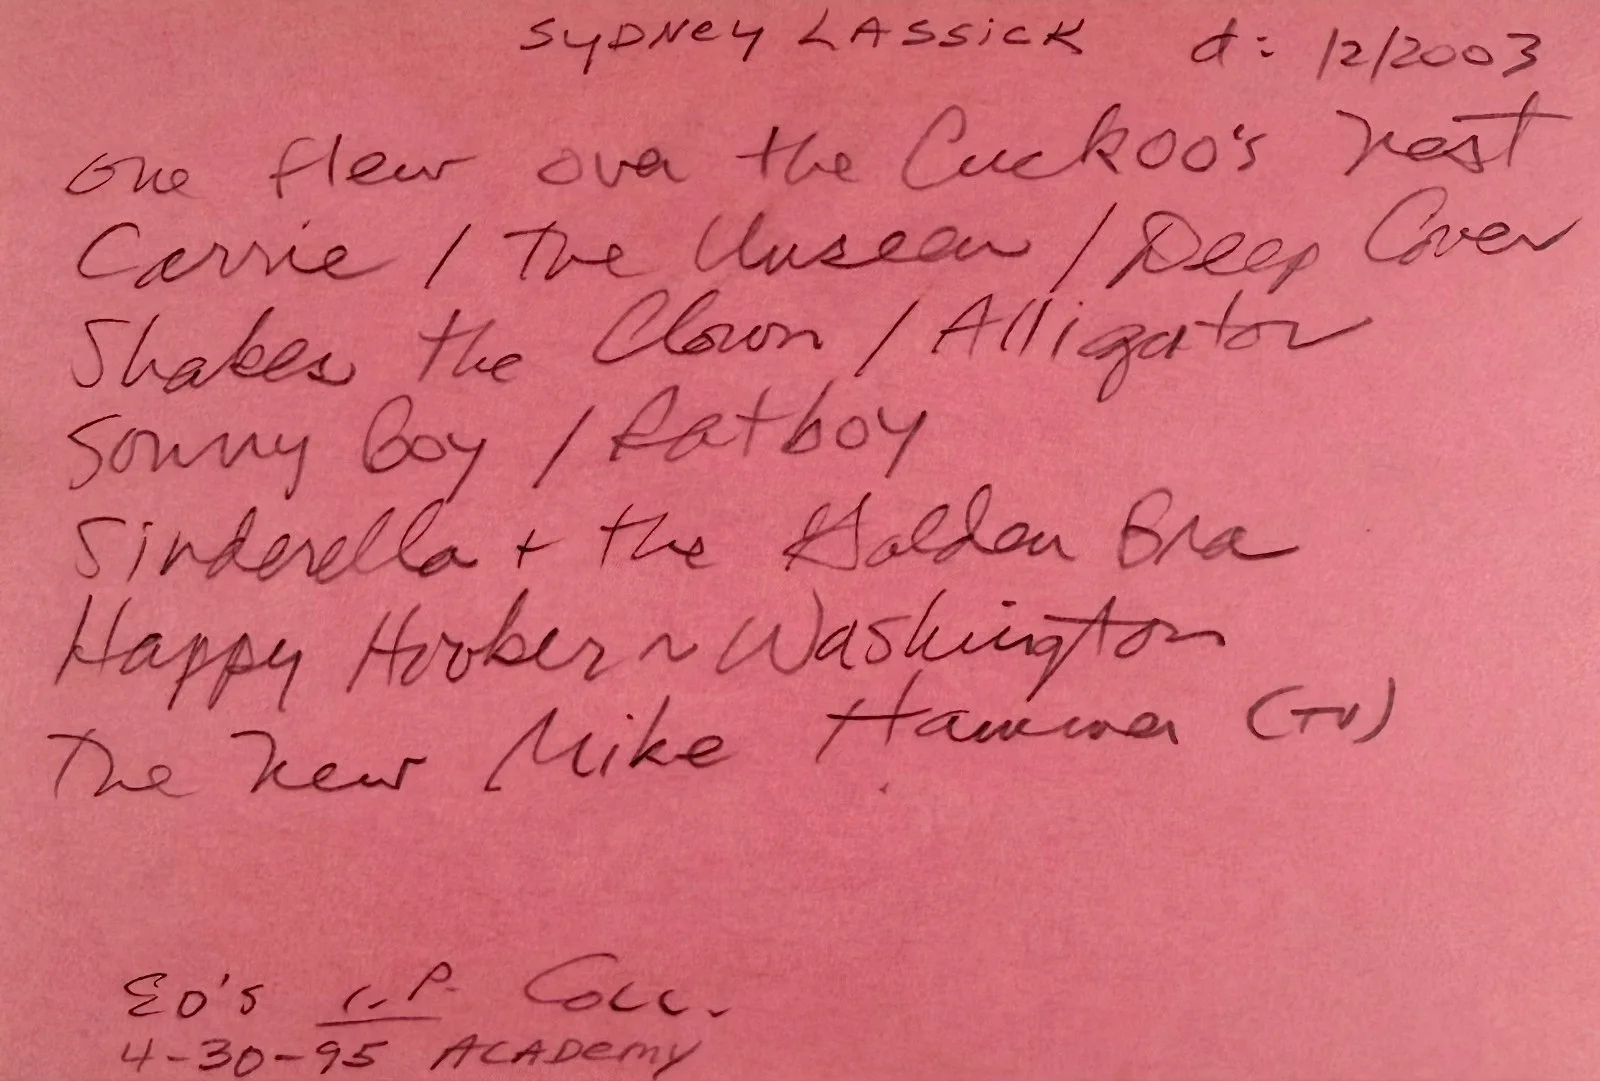 SYDNEY LASSICK d: 12/2003
One flew over the Cuckoo's nest
Carrie / The Unseen / Deep Cover
Shakes the Clown / Alligator
Sonny Boy / Ratboy
Sinderella + the Golden Bra
Happy Hooker ~ Washington
The New Mike Hammer (TV)
ED'S I.P. Coll.
4-30-95 ACADEMY